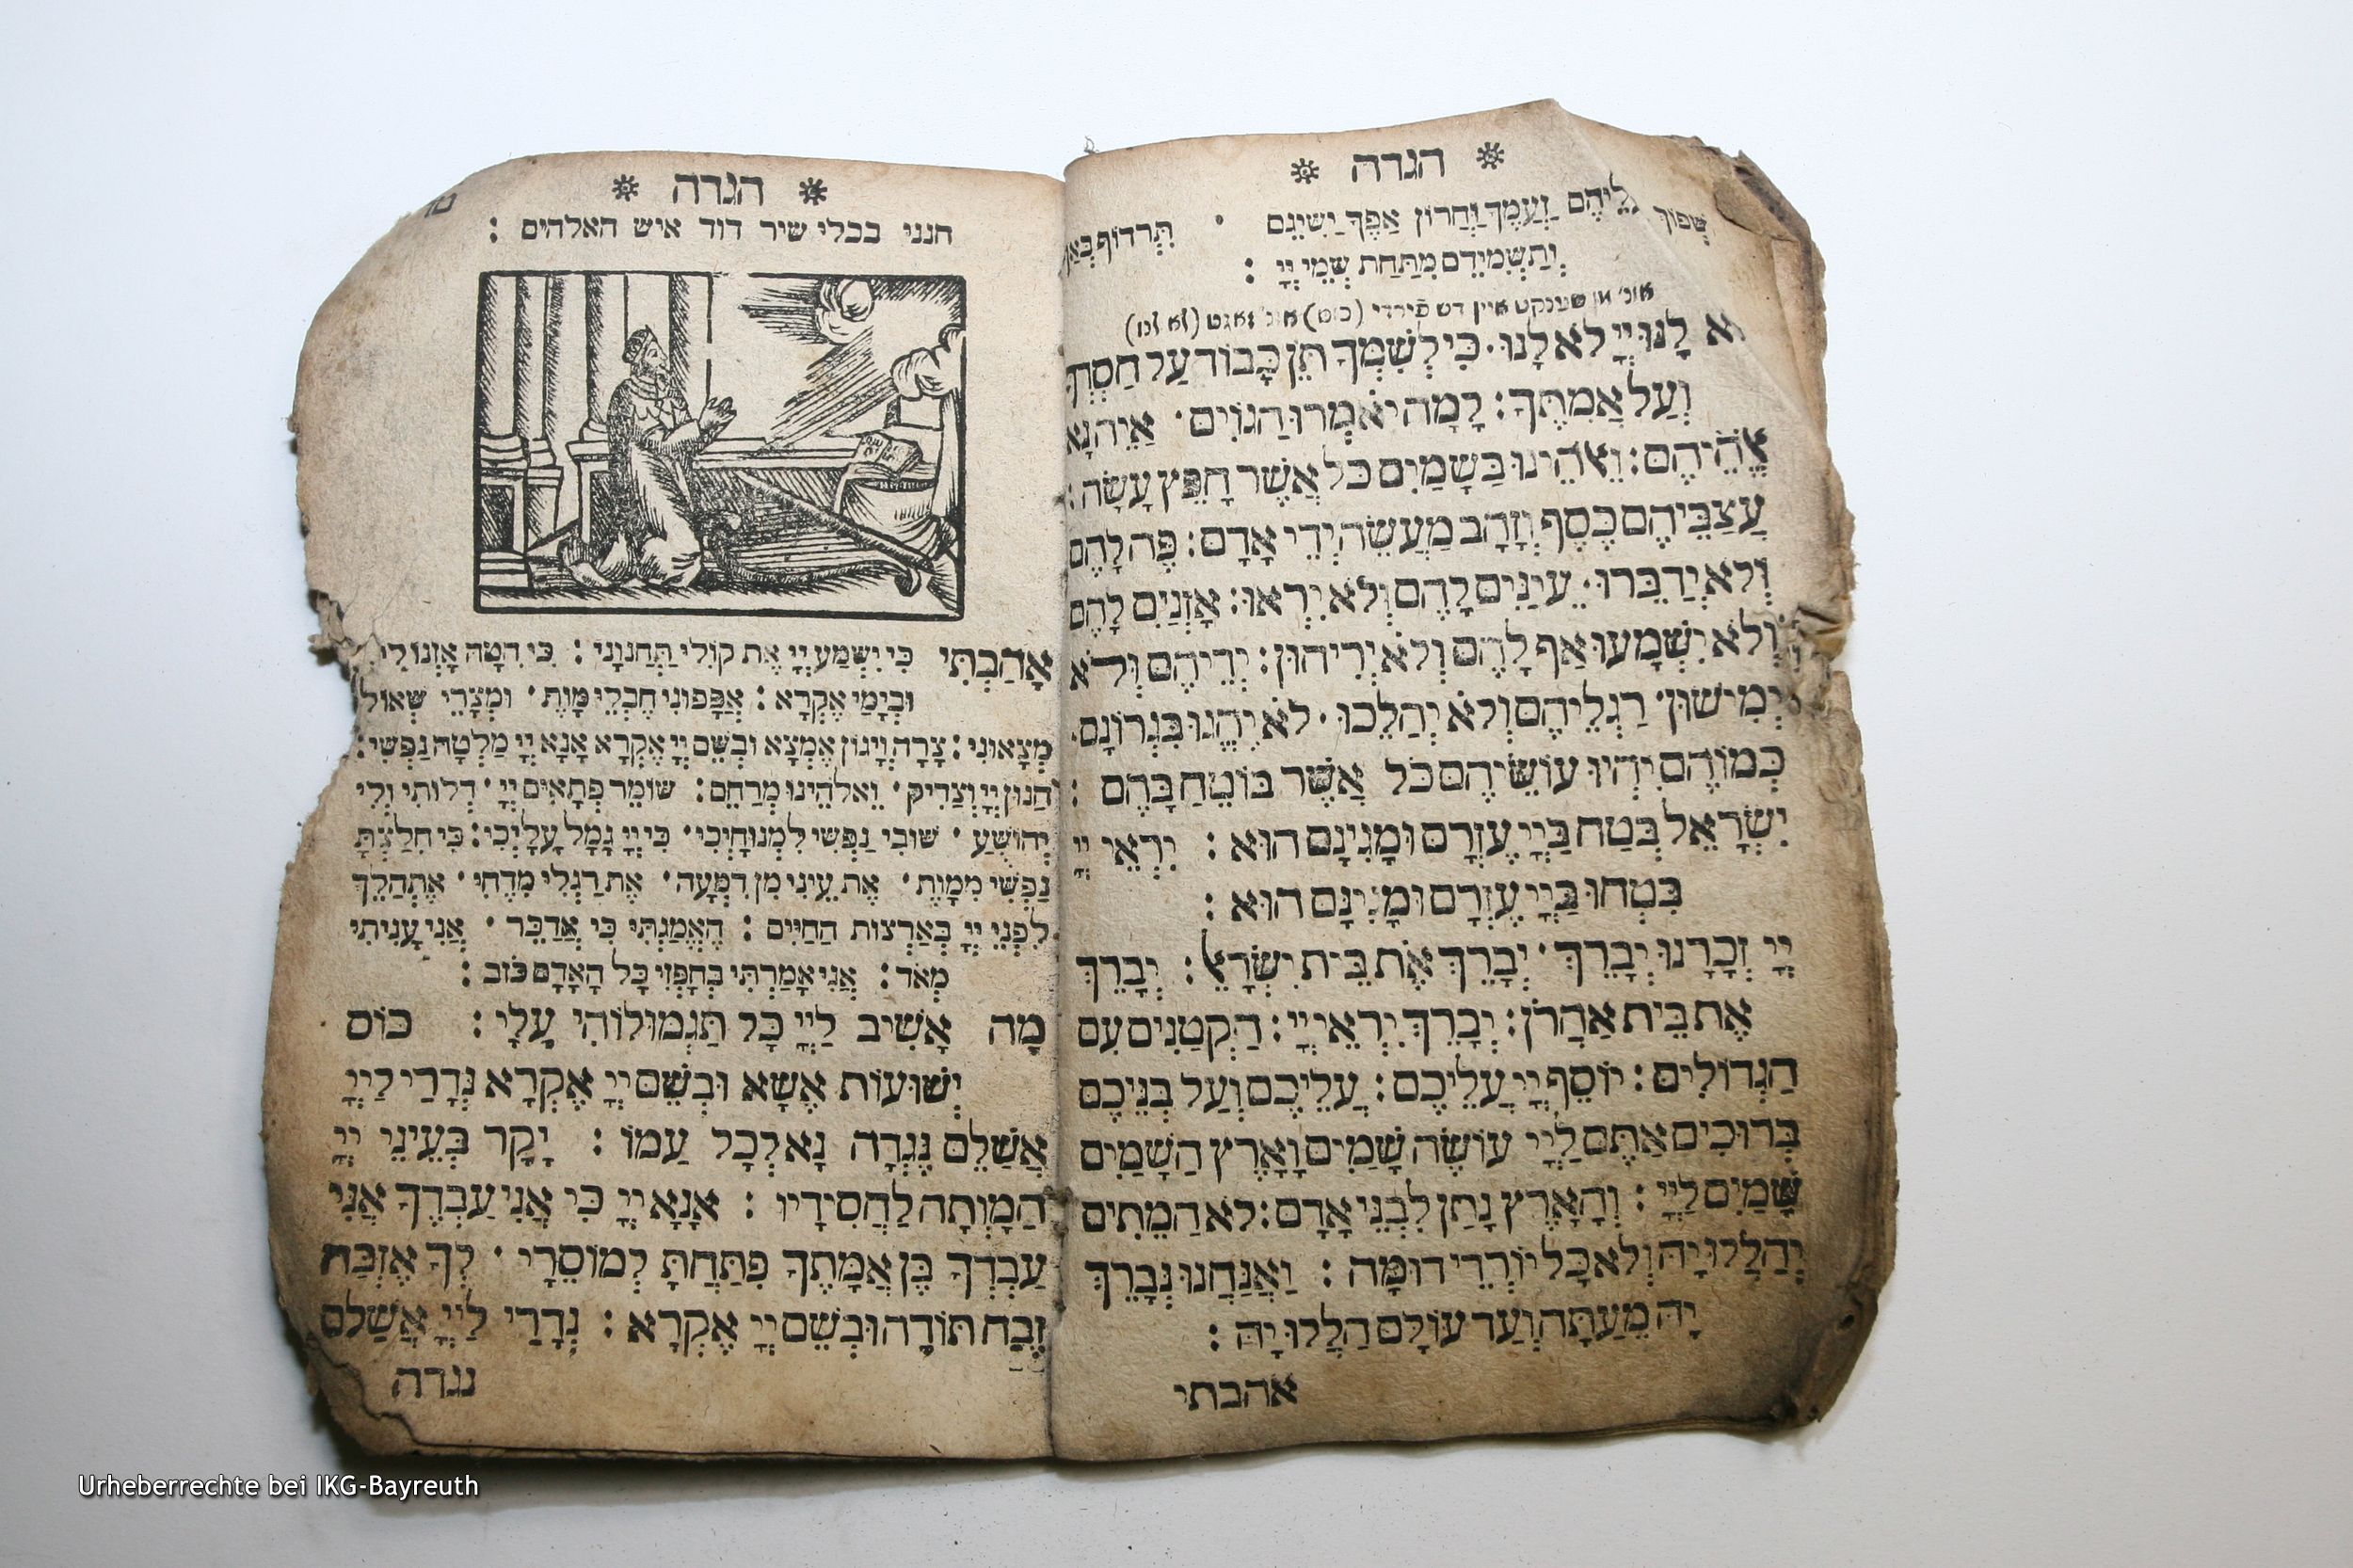 * הגדה *
שְׁפוֹךְ עֲלֵיהֶם זַעְמֶךָ וַחֲרוֹן אַפְּךָ יַשִּׂיגֵם · תִּרְדּוֹף בְּאַף
וְתַשְׁמִידֵם מִתַּחַת שְׁמֵי יְיָ :
אונ' מן שענקט איין דש פֿירדי (כוס) אונ' זאגט (לא לנו)
לֹא לָנוּ יְיָ לֹא לָנוּ · כִּי לְשִׁמְךָ תֵּן כָּבוֹד עַל חַסְדְּךָ
וְעַל אֲמִתֶּךָ : לָמָה יֹאמְרוּ הַגּוֹיִם · אַיֵּה נָא
אֱלֹהֵיהֶם : וֵאלֹהֵינוּ בַּשָּׁמַיִם כֹּל אֲשֶׁר חָפֵץ עָשָׂה :
עֲצַבֵּיהֶם כֶּסֶף וְזָהָב מַעֲשֵׂה יְדֵי אָדָם : פֶּה לָהֶם
וְלֹא יְדַבֵּרוּ · עֵינַיִם לָהֶם וְלֹא יִרְאוּ : אָזְנַיִם לָהֶם
וְלֹא יִשְׁמָעוּ אַף לָהֶם וְלֹא יְרִיחוּן : יְדֵיהֶם וְלֹא
יְמִישׁוּן · רַגְלֵיהֶם וְלֹא יְהַלֵּכוּ · לֹא יֶהְגּוּ בִּגְרוֹנָם ·
כְּמוֹהֶם יִהְיוּ עוֹשֵׂיהֶם כֹּל אֲשֶׁר בּוֹטֵחַ בָּהֶם :
יִשְׂרָאֵל בְּטַח בַּיְיָ עֶזְרָם וּמָגִינָם הוּא : יִרְאֵי יְיָ
בִּטְחוּ בַּיְיָ עֶזְרָם וּמָגִינָּם הוּא :
יְיָ זְכָרָנוּ יְבָרֵךְ · יְבָרֵךְ אֶת בֵּית יִשְׂרָאֵל : יְבָרֵךְ
אֶת בֵּית אַהֲרֹן : יְבָרֵךְ יִרְאֵי יְיָ : הַקְּטַנִּים עִם
הַגְּדוֹלִים : יוֹסֵף יְיָ עֲלֵיכֶם : עֲלֵיכֶם וְעַל בְּנֵיכֶם
בְּרוּכִים אַתֶּם לַיְיָ עוֹשֶׂה שָׁמַיִם וָאָרֶץ הַשָּׁמַיִם
שָׁמַיִם לַיְיָ : וְהָאָרֶץ נָתַן לִבְנֵי אָדָם : לֹא הַמֵּתִים
יְהַלְלוּ יָהּ וְלֹא כָּל יוֹרְדֵי דוּמָה : וַאֲנַחְנוּ נְבָרֵךְ
יָהּ מֵעַתָּה וְעַד עוֹלָם הַלְלוּיָהּ :
אהבתי
* הגדה *
חנני בכלי שיר דוד איש האלהים :
אָהַבְתִּי כִּי יִשְׁמַע יְיָ אֶת קוֹלִי תַּחֲנוּנָי : כִּי הִטָּה אָזְנוֹ לִי
וּבְיָמַי אֶקְרָא : אֲפָפוּנִי חֶבְלֵי מָוֶת · וּמְצָרֵי שְׁאוֹל
מְצָאוּנִי : צָרָה וְיָגוֹן אֶמְצָא וּבְשֵׁם יְיָ אֶקְרָא אָנָא יְיָ מַלְּטָה נַפְשִׁי :
חַנּוּן יְיָ וְצַדִּיק · וֵאלֹהֵינוּ מְרַחֵם : שׁוֹמֵר פְּתָאיִם יְיָ · דַּלּוֹתִי וְלִי
יְהוֹשִׁעַ · שׁוּבִי נַפְשִׁי לִמְנוּחָיְכִי · כִּי יְיָ גָּמַל עָלָיְכִי : כִּי חִלַּצְתָּ
נַפְשִׁי מִמָּוֶת · אֶת עֵינִי מִן דִּמְעָה · אֶת רַגְלִי מִדֶּחִי · אֶתְהַלֵּךְ
לִפְנֵי יְיָ בְּאַרְצוֹת הַחַיִּים : הֶאֱמַנְתִּי כִּי אֲדַבֵּר · אֲנִי עָנִיתִי
מְאֹד : אֲנִי אָמַרְתִּי בְחָפְזִי כָּל הָאָדָם כֹּזֵב :
מָה אָשִׁיב לַיְיָ כָּל תַּגְמוּלוֹהִי עָלָי : כּוֹס
יְשׁוּעוֹת אֶשָּׂא וּבְשֵׁם יְיָ אֶקְרָא נְדָרַי לַיְיָ
אֲשַׁלֵּם נֶגְדָה נָא לְכָל עַמּוֹ : יָקָר בְּעֵינֵי יְיָ
הַמָּוְתָה לַחֲסִידָיו : אָנָא יְיָ כִּי אֲנִי עַבְדֶּךָ אֲנִי
עַבְדְּךָ בֶּן אֲמָתֶךָ פִּתַּחְתָּ לְמוֹסֵרָי · לְךָ אֶזְבַּח
זֶבַח תּוֹדָה וּבְשֵׁם יְיָ אֶקְרָא : נְדָרַי לַיְיָ אֲשַׁלֵּם
נגדה
Urheberrechte bei IKG-Bayreuth